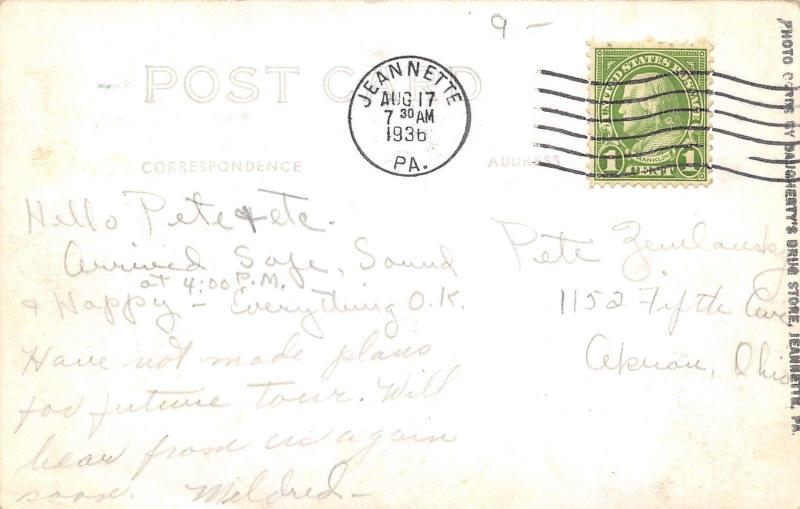 9-
POST CARD
JEANNETTE
AUG 17
7 30 AM
1936
PA.
UNITED STATES POSTAGE
1 FRANKLIN 1
CORRESPONDENCE
ADDRESS
Hello Pete & etc.
Arrived Safe, Sound
at 4:00 P.M.
& Happy - Everything O.K.
Have not made plans
for future tour. Will
hear from us again
soon. Mildred-
Pete
1152 Fifth Ave
Akron, Ohio
PHOTO CARDS BY DAUGHERTY'S DRUG STORE, JEANNETTE, PA.